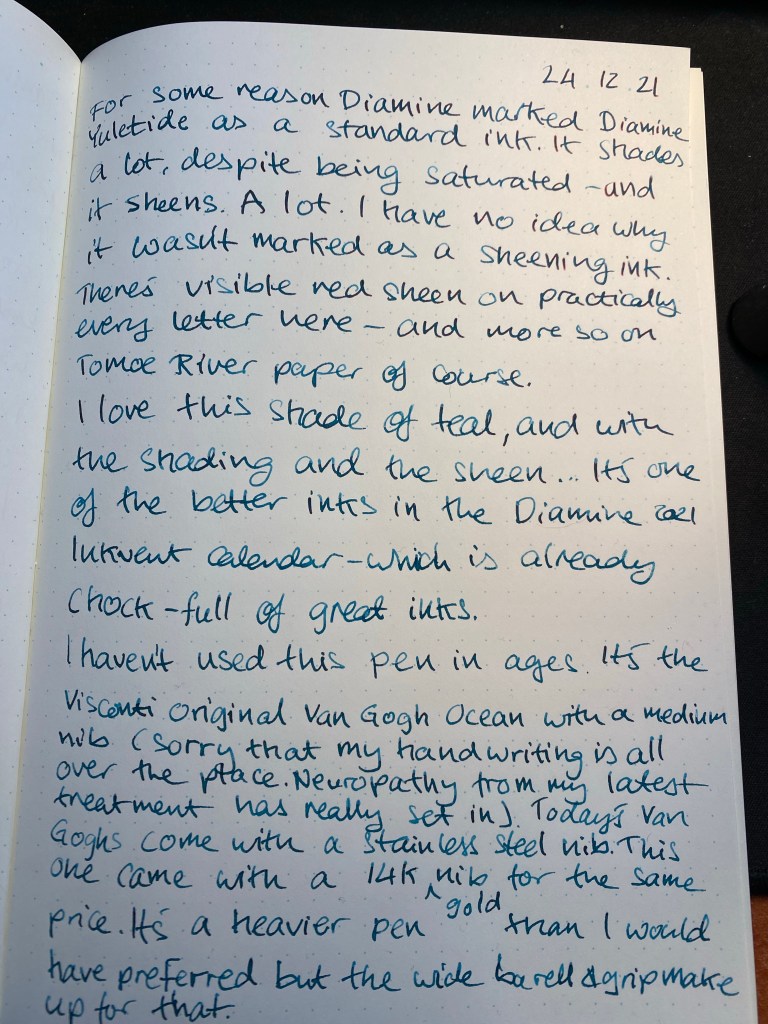 24.12.21
For some reason Diamine marked Diamine
Yuletide as a standard ink. It shades
a lot, despite being saturated - and
it sheens. A lot. I have no idea why
it wasn't marked as a sheening ink.
There's visible red sheen on practically
every letter here - and more so on
Tomoe River paper of course.
I love this shade of teal, and with
the shading and the sheen... It's one
of the better inks in the Diamine 2021
Inkvent calendar - which is already
chock-full of great inks.
I haven't used this pen in ages. It's the
Visconti Original Van Gogh Ocean with a medium
nib (sorry that my handwriting is all
over the place. Neuropathy from my latest
treatment has really set in). Today's Van
Goghs come with a stainless steel nib. This
one came with a 14K ^ nib for the same
gold
price. It's a heavier pen than I would
have preferred but the wide barell & grip make
up for that.